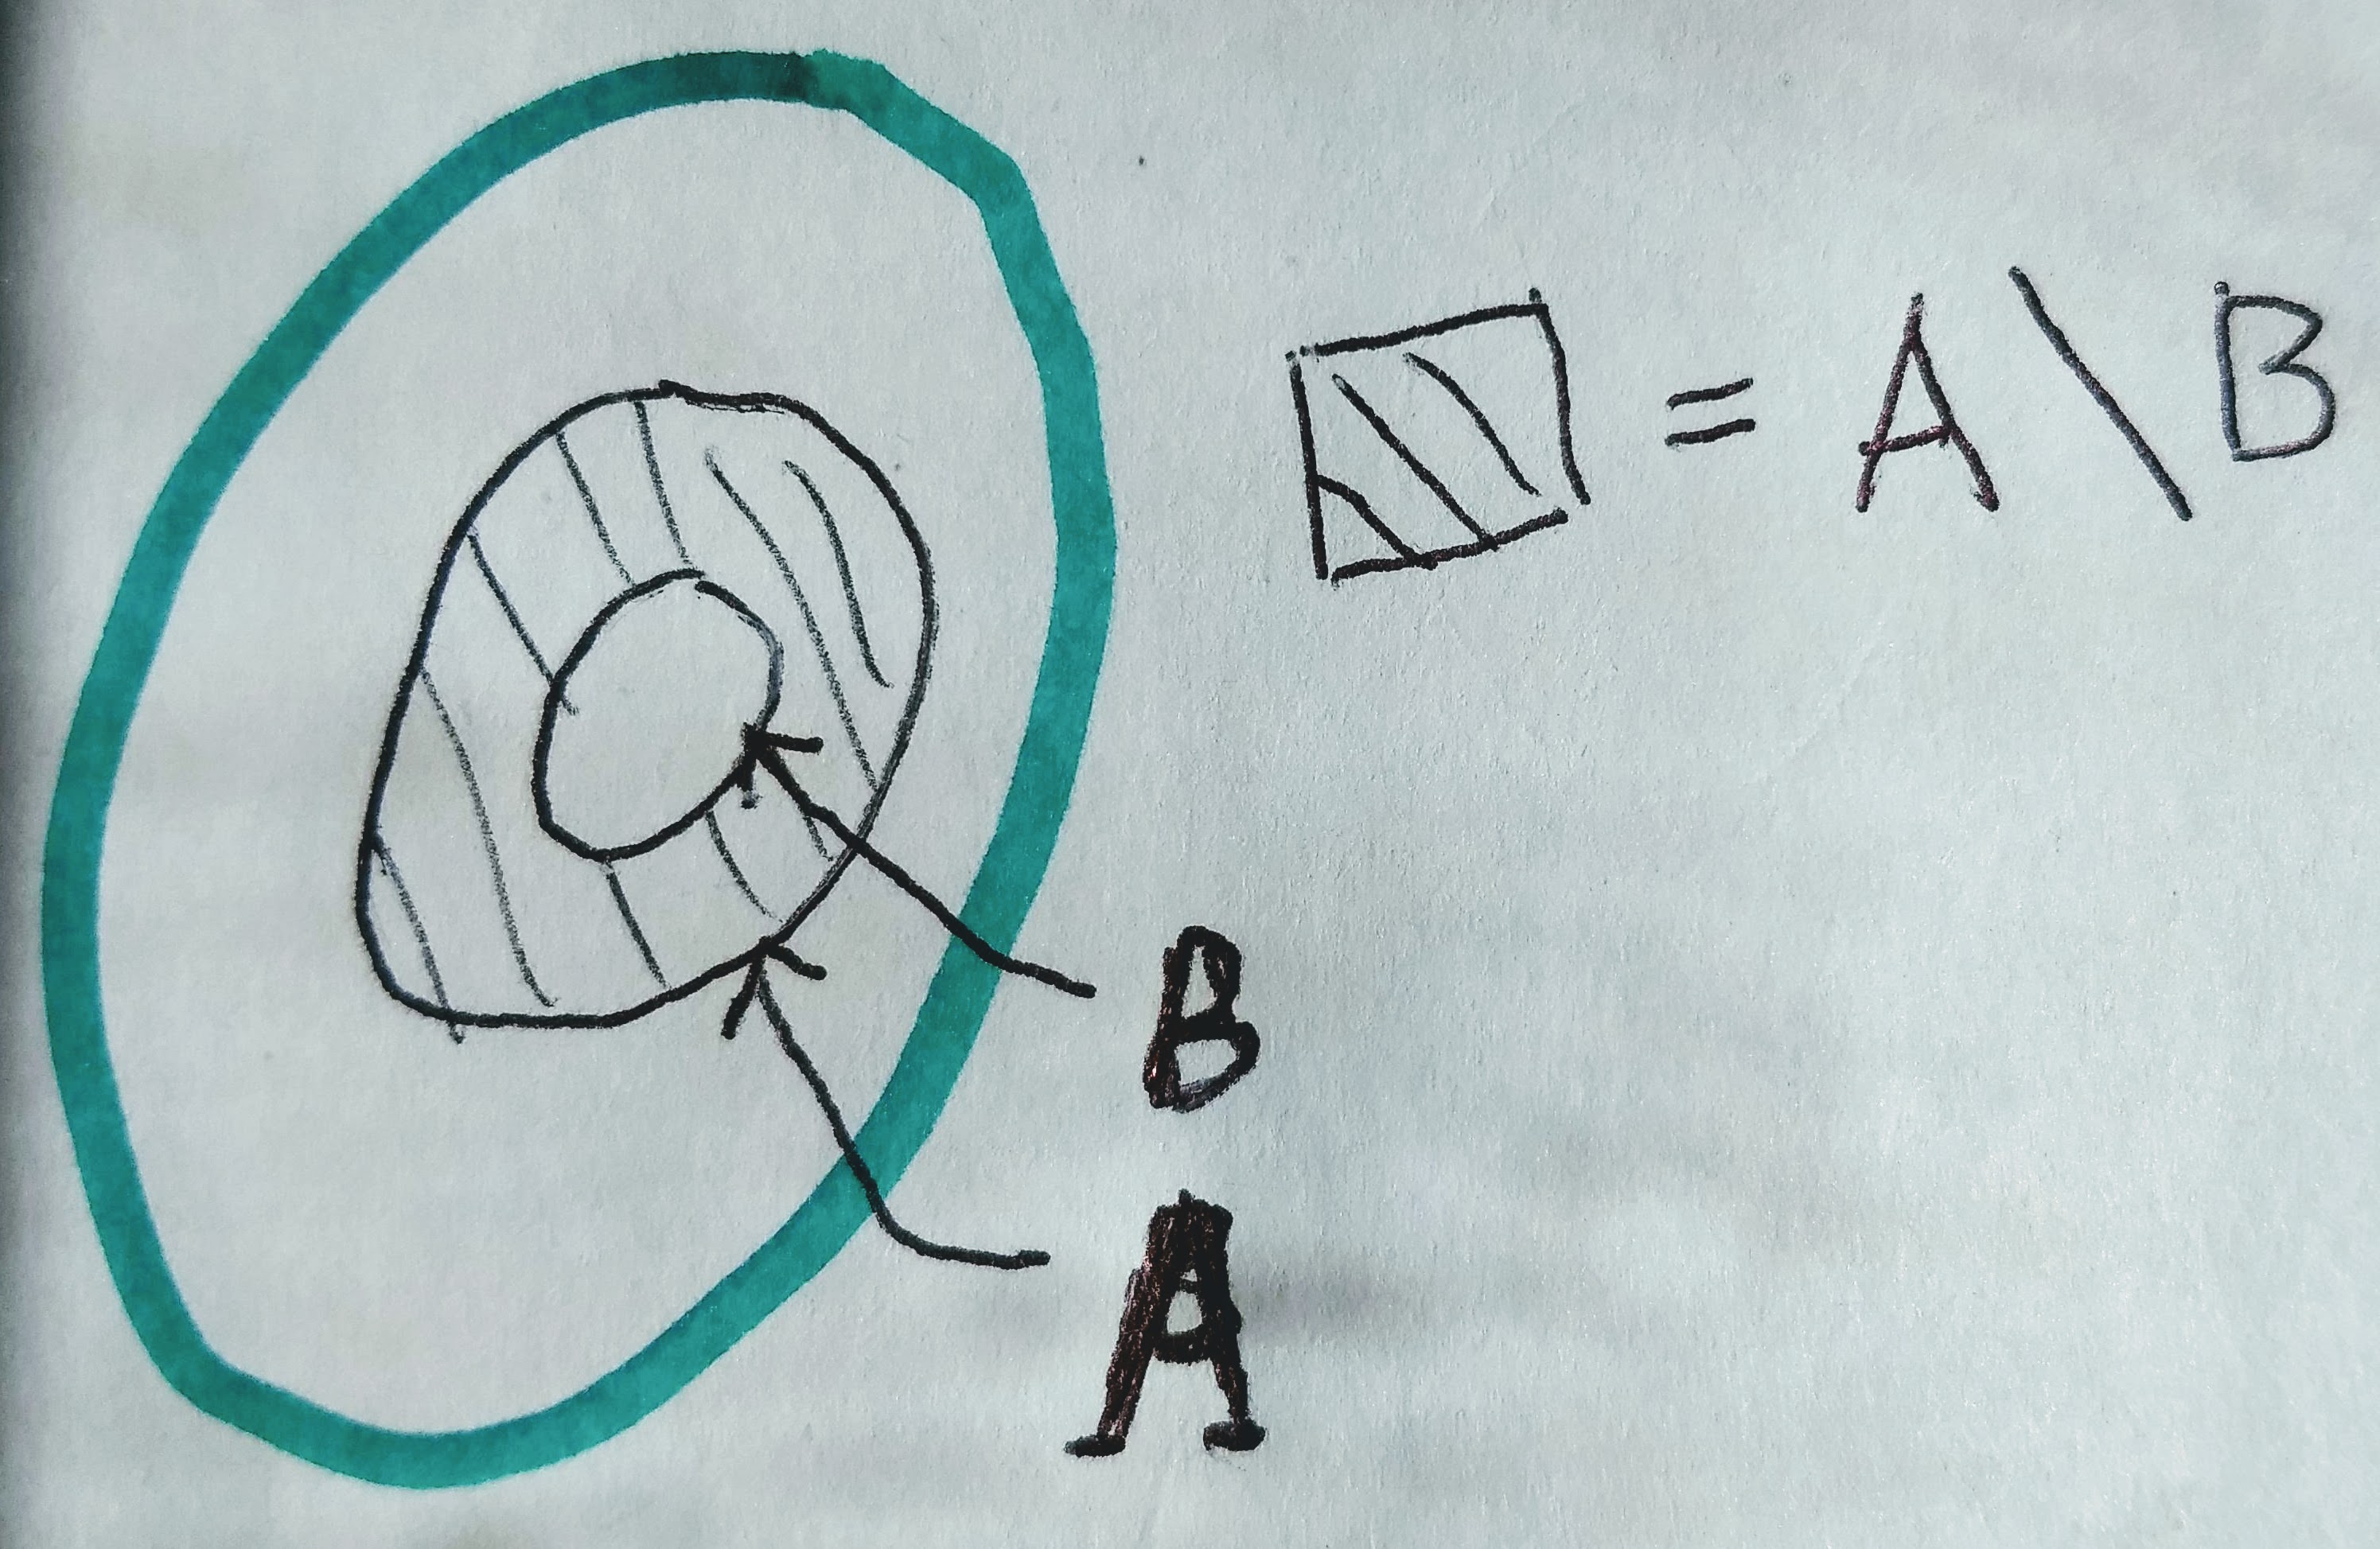 = A \ B
B
A